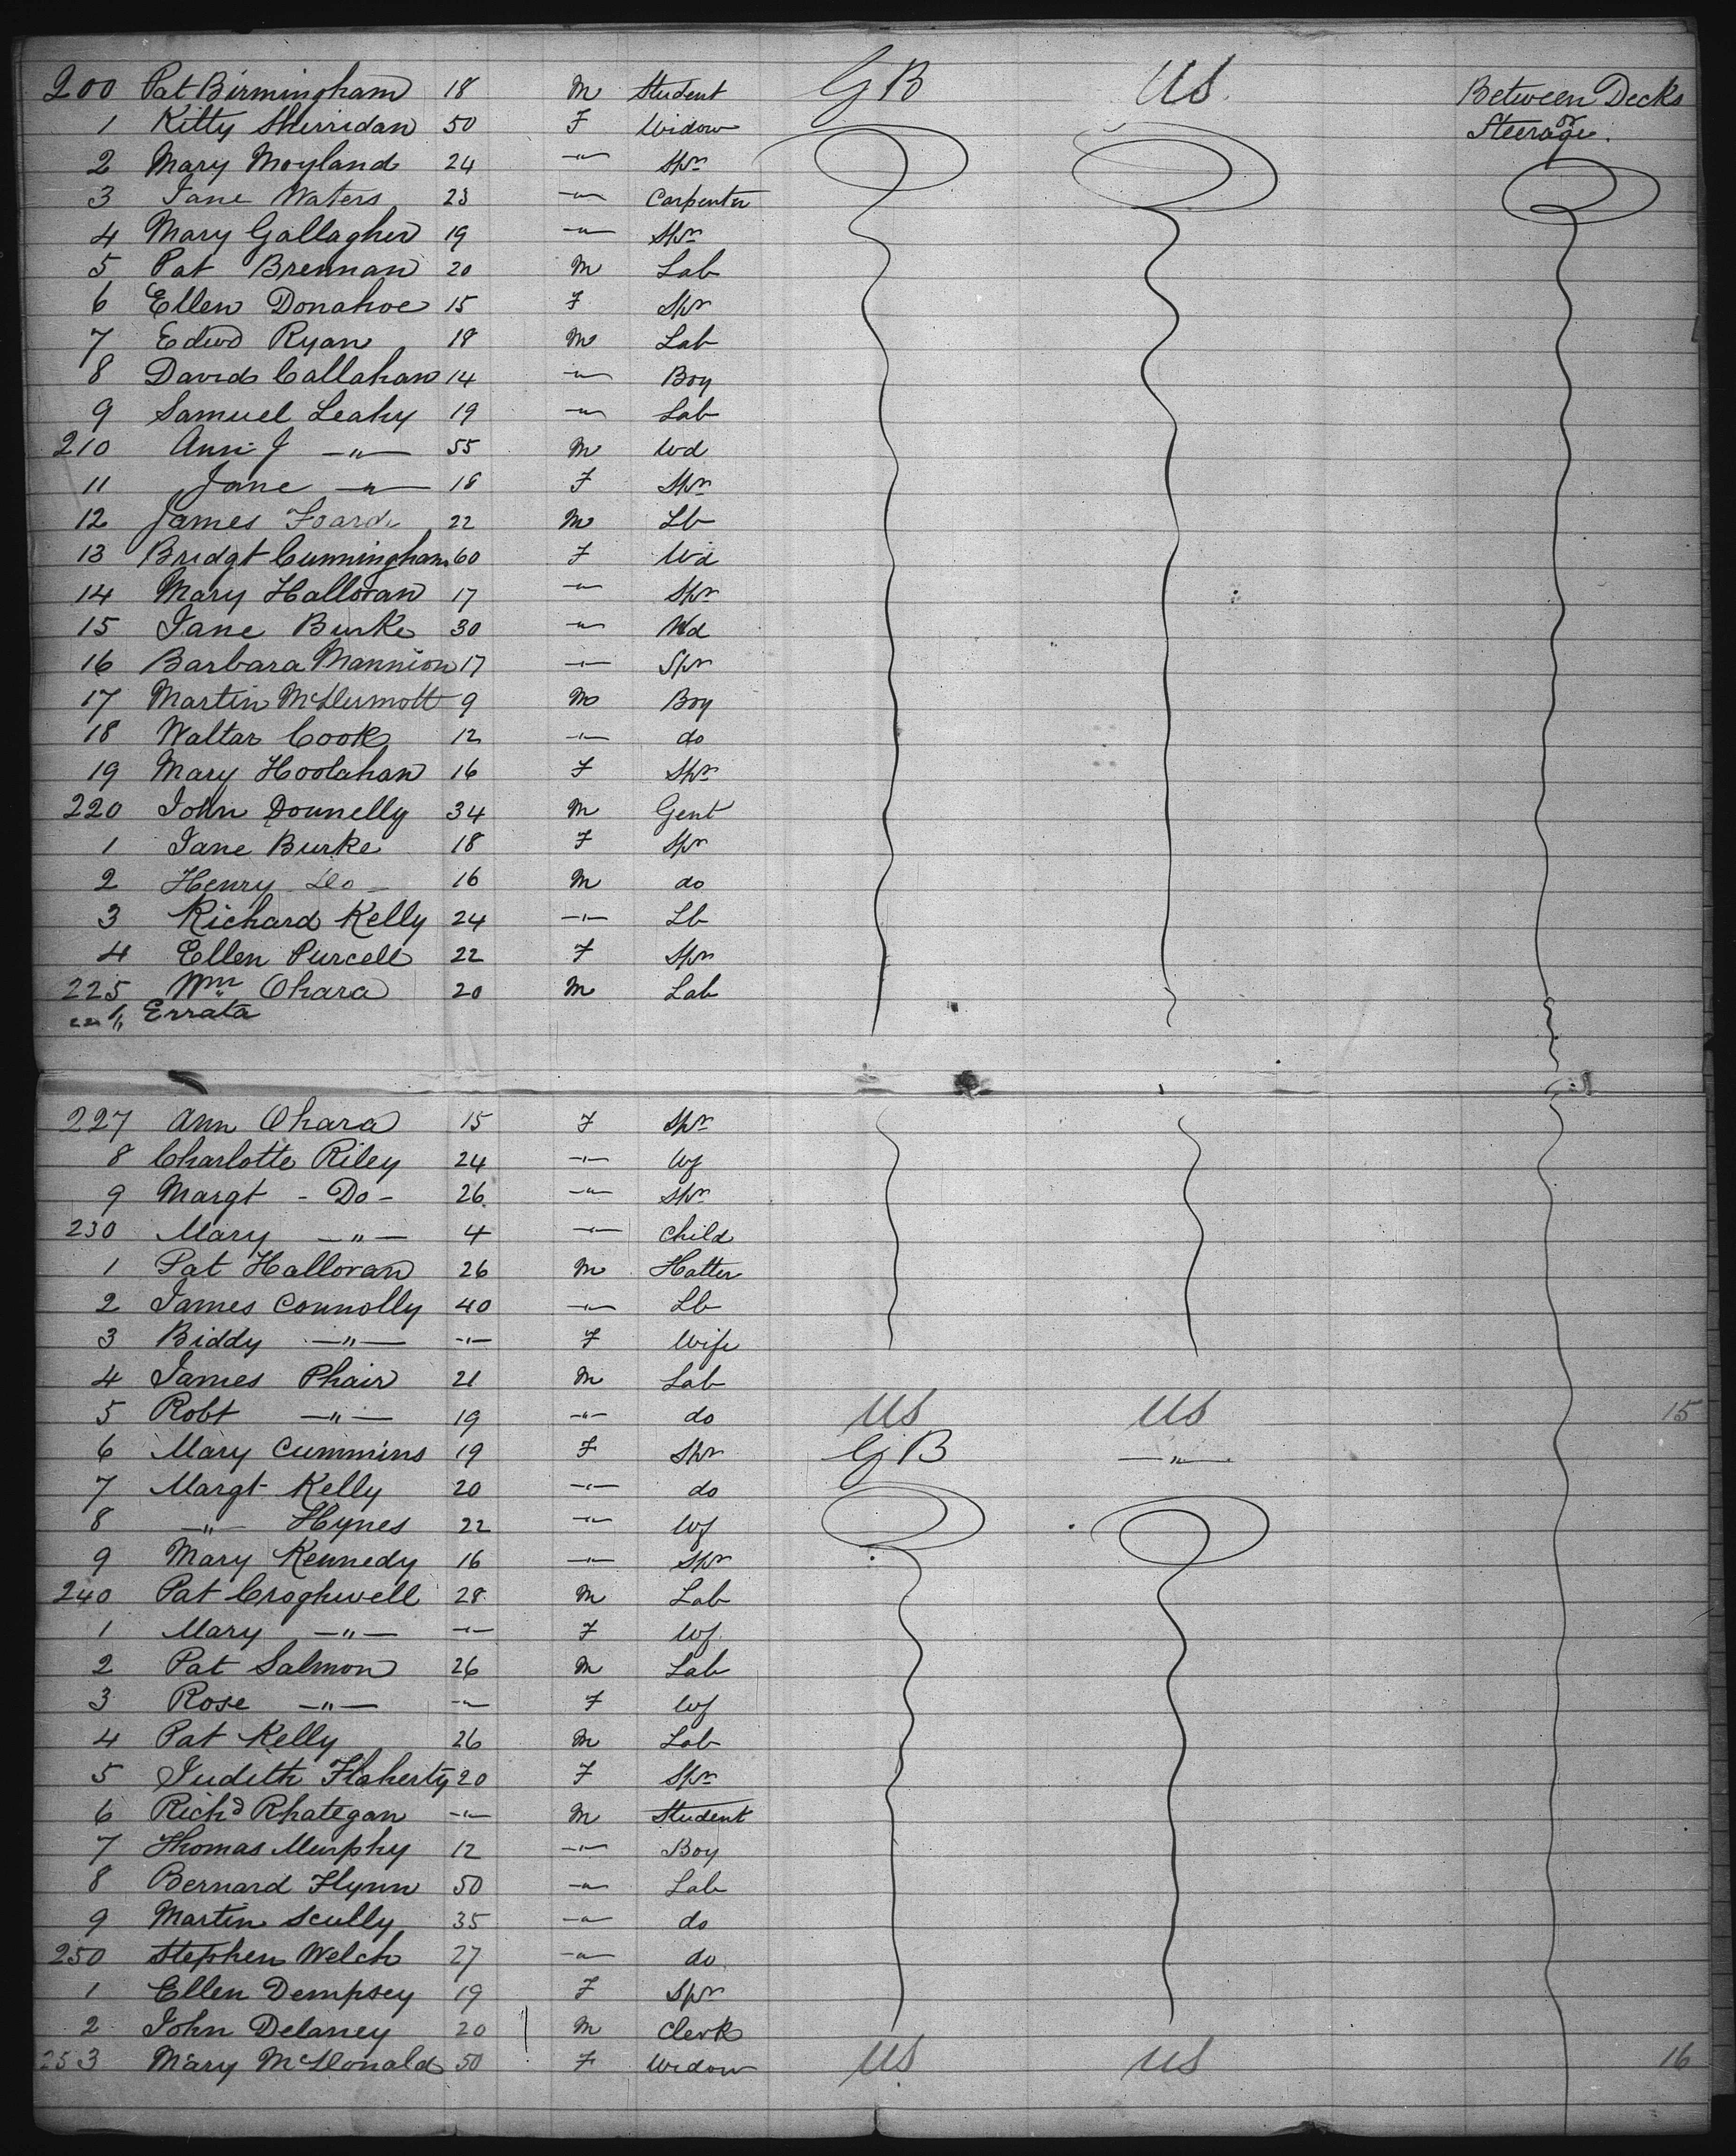 200 Pat Birmingham 18 M Student GB US. Between Decks
1 Kitty Sherridan 50 F Widow or Steerage.
2 Mary Moyland 24 —"— Spr
3 Jane Waters 23 —"— Carpenter
4 Mary Gallagher 19 —"— Spr
5 Pat Brennan 20 M Lab
6 Ellen Donahoe 15 F Spr
7 Edwd Ryan 18 M Lab
8 David Callahan 14 —"— Boy
9 Samuel Leahy 19 —"— Lab
210 Ann J —"— 55 M Wd
11 Jane —"— 18 F Spr
12 James Foard 22 M Lb
13 Bridgt Cunningham 60 F Wd
14 Mary Halloran 17 —"— Spr
15 Jane Burke 30 —"— Wd
16 Barbara Mannion 17 —"— Spr
17 Martin McDermott 9 M Boy
18 Waltar Cook 12 —"— do
19 Mary Hoolahan 16 F Spr
220 John Donnelly 34 M Gent
1 Jane Burke 18 F Spr
2 Henry Do — 16 M do
3 Richard Kelly 24 —"— Lb
4 Ellen Purcell 22 F Spr
225 Wm Ohara 20 M Lab
Errata
227 Ann Ohara 15 F Spr
8 Charlotte Riley 24 —"— Wf
9 Margt - Do - 26 —"— Spr
230 Mary —"— 4 —"— Child
1 Pat Halloran 26 M Hatter
2 James Connolly 40 —"— Lb
3 Biddy —"— —"— F Wife
4 James Phair 21 M Lab
5 Robt —"— 19 —"— do US US 15
6 Mary Cummins 19 F Spr GB —"—
7 Margt Kelly 20 —"— do
8 —"— Hynes 22 —"— Wf
9 Mary Kennedy 16 —"— Spr
240 Pat Croghwell 28 M Lab
1 Mary —"— —"— F Wf
2 Pat Salmon 26 M Lab
3 Rose —"— —"— F Wf
4 Pat Kelly 26 M Lab
5 Judith Flaherty 20 F Spr
6 Richd Rhategan —"— M Student
7 Thomas Murphy 12 —"— Boy
8 Bernard Flynn 50 —"— Lab
9 Martin Scully 35 —"— do
250 Stephen Welch 27 —"— do
1 Ellen Dempsey 19 F Spr
2 John Delaney 20 M Clerk
253 Mary McDonald 50 F Widow US US 16